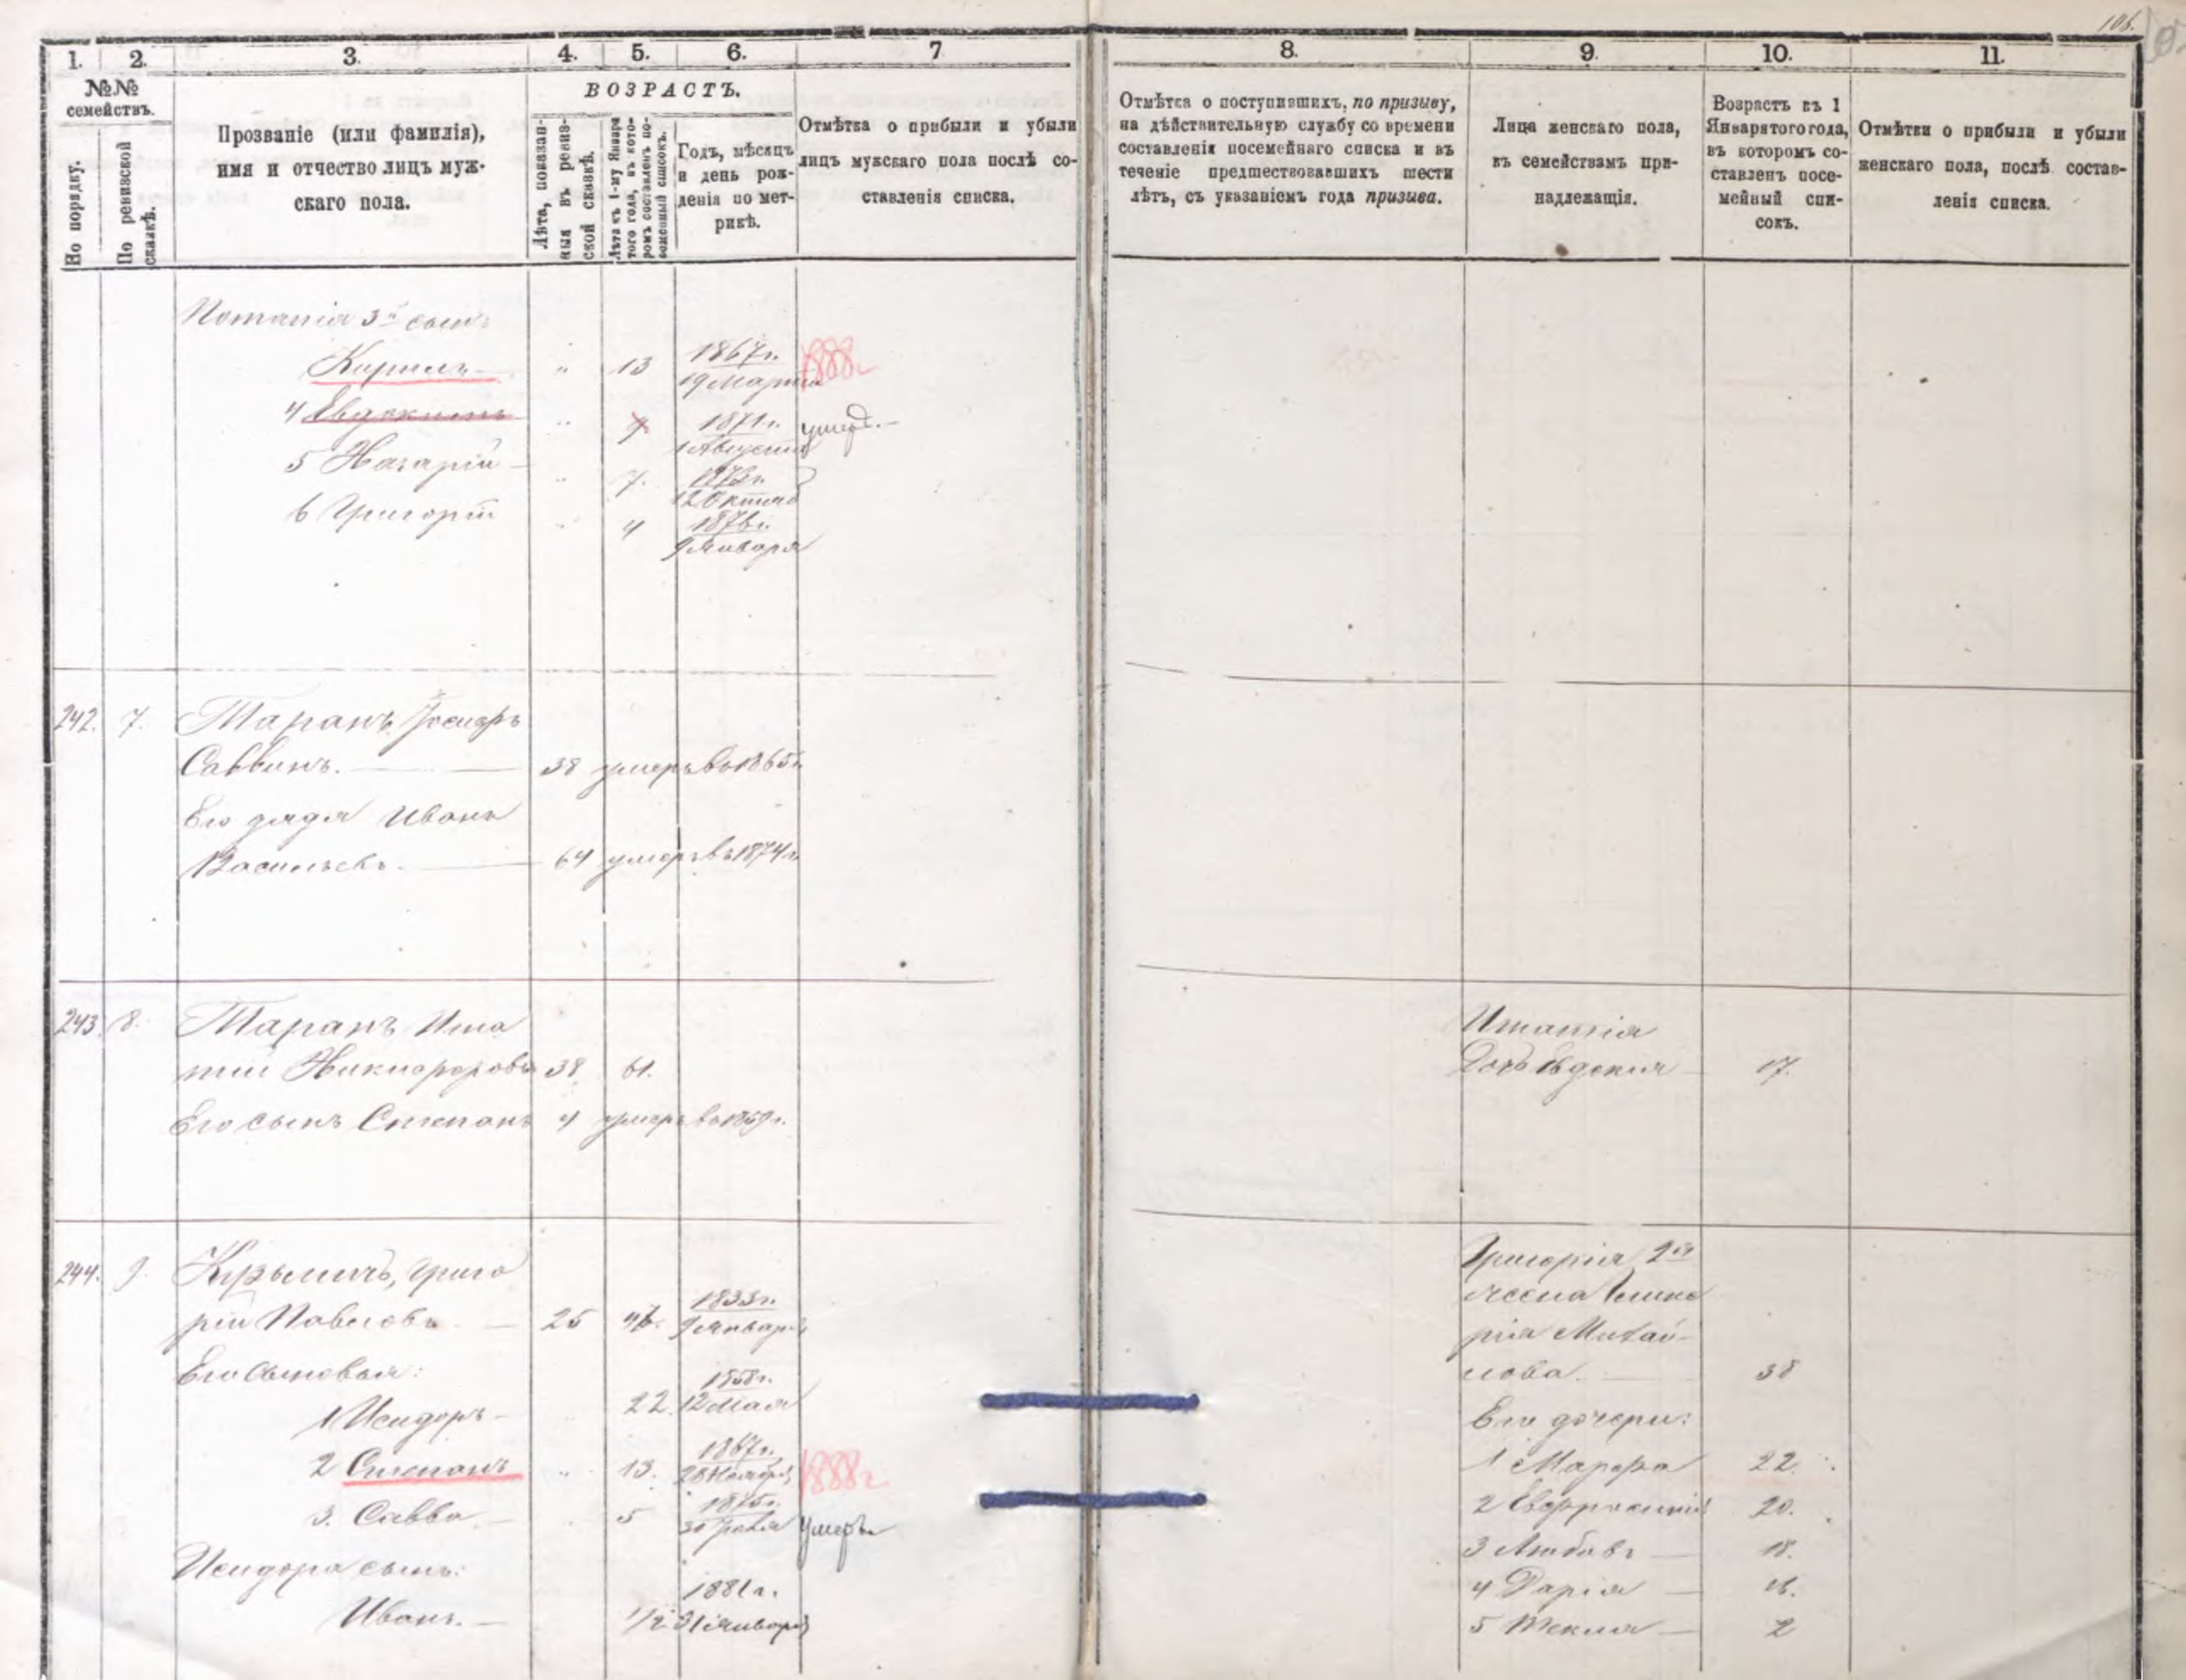 106.
1. 2. 3. 4. 5. 6. 7
№№ семействъ.
По порядку.
По ревизской сказкѣ.
Прозваніе (или фамилія),
имя и отчество лицъ муж-
скаго пола.
ВОЗРАСТЪ.
Лѣта, показан-
ныя въ ревиз-
ской сказкѣ.
Лѣта къ 1-му Января
того года, въ кото-
ромъ составленъ по-
семейный списокъ.
Годъ, мѣсяцъ
и день рож-
денія по мет-
рикѣ.
Отмѣтка о прибыли и убыли
лицъ мужскаго пола послѣ со-
ставленія списка.
8. 9. 10. 11.
Отмѣтка о поступившихъ, по призыву,
на дѣйствительную службу со времени
составленія посемейнаго списка и въ
теченіе предшествовавшихъ шести
лѣтъ, съ указаніемъ года призыва.
Лица женскаго пола,
къ семействамъ при-
надлежащія.
Возрастъ къ 1
Января того года,
въ которомъ со-
ставленъ посе-
мейный спи-
сокъ.
Отмѣтки о прибыли и убыли
женскаго пола, послѣ состав-
ленія списка.
3й сынъ
Кирилъ 13 1867г. 19 Марта 1888г
4 Евдокимъ 1871г. 1 Августа умер.
5 Назарій 7. 1873г. 12 Октяб
6 Григорій 4 1876г. 9 Января
242. 7. Таранъ
Саввинъ. 38 умеръ въ 1865г.
Его дядя Иванъ
Васильевъ. 64 умеръ въ 1874г.
243. 8. Таранъ Игна
тій Никифоровъ 38 61.
Его сынъ Степанъ 4 умеръ въ 1859г.
Игнатія
дочь Евдокія 17.
244. 9. Кузьмичъ, Григо
рій Павловъ 25 47. 1833г. 9 Января
Его сыновья:
1 Исидоръ 22. 1858г. 12 Мая
2 Степанъ 13. 1867г. 28 Ноября 1888г
3. Савва 5 1875г. умеръ
Исидора сынъ:
Иванъ. 1/2 1881г. 31 Января
Григорія 2я
жена Глике
рія Михай-
лова. 38
Его дочери:
1 Марфа 22.
2 Евфросинія 20.
3 Любовь 18.
4 Дарія 16.
5 Текля 2